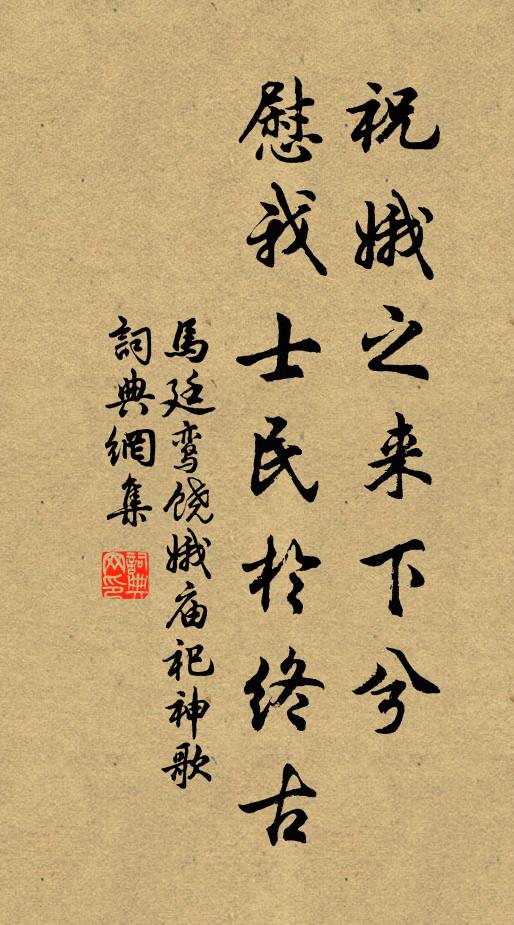 祝娥之来下兮
慰我士民於终古
馬廷鸾饶娥庙祀神歌
詞典網集
詞典
网印